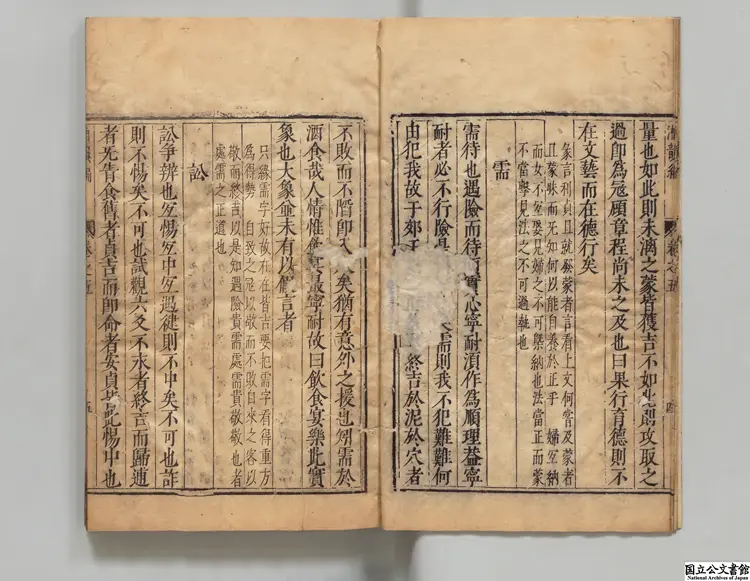 量也如此則未漓之蒙皆獲吉不如此即攻取之
過即為寇顧章程尚未之及也曰果行育德則不
在文藝而在德行矣
彖言利貞且就發蒙者言看上文何嘗及蒙者
且蒙昧而无知何以能自養於正乎 婦宜納
而女不宜娶見婦之不可槩納也法當正而蒙
不當擊見法之不可過執也
需
需待也遇險而待 心寧耐湏作為順理益寧
耐者必不行險 需則我不犯難難何
由犯我故于郊 終吉於泥於穴者
不敗而不陷即入 矣猶有意外之援也矧需於
酒食哉人情惟 最寧耐故曰飲食宴樂此實
象也大象並未有以 言者
只緣需字好故在在皆吉要把需字看得重方
為得勢 自致之寇以敬而不敗自來之客以
敬而終吉以是知遇險貴需處需貴敬敬也者
處需之正道也
訟
訟爭辨也宜惕宜中宜過徤則不中矣不可也詐
則不惕矣不可也試觀六爻不永者終吉而歸逋
者无眚食舊者貞吉而即命者安貞 此惕中也
卷之五
五
國立公文書館
National Archives of Japan